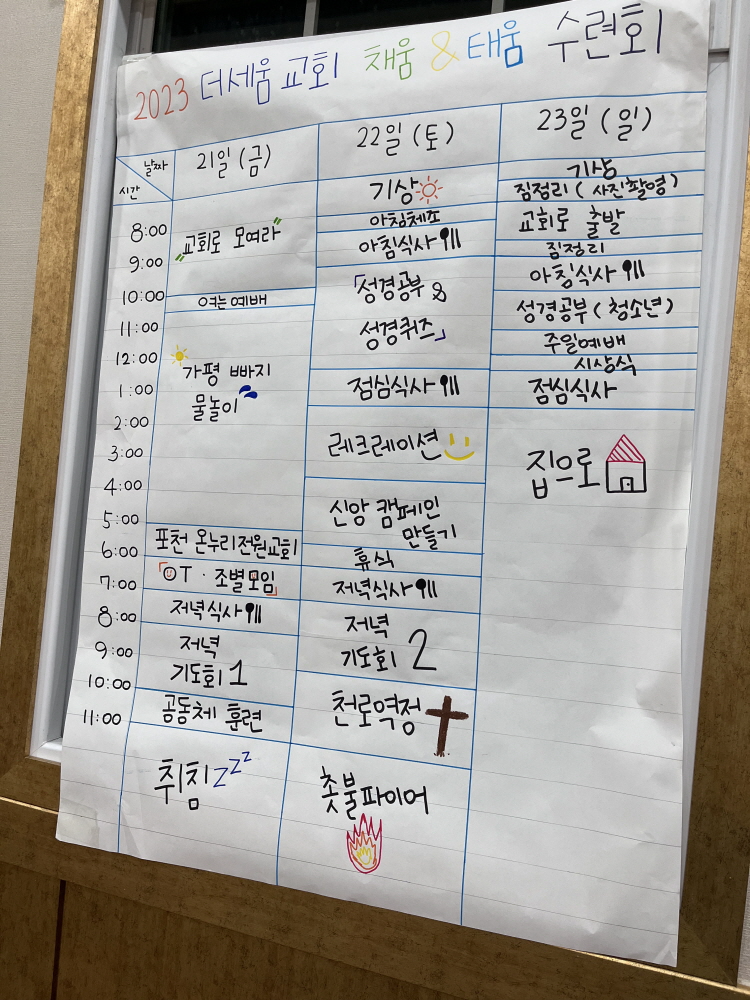 2023 더세움 교회 채움 & 태움 수련회
날짜
시간
21일 (금)
22일 (토)
23일 (일)
8:00
9:00
10:00
11:00
12:00
1:00
2:00
3:00
4:00
5:00
6:00
7:00
8:00
9:00
10:00
11:00
"교회로 모여라"
여는예배
가평 빠지
물놀이
포천 온누리전원교회
「OT · 조별모임」
저녁식사
저녁
기도회 1
공동체 훈련
취침 zzz
기상
아침체조
아침식사
「성경공부 &
성경퀴즈」
점심식사
레크레이션
신앙 캠페인
만들기
휴식
저녁식사
저녁
기도회 2
천로역정
촛불파이어
기상
짐정리 (사진촬영)
교회로 출발
짐정리
아침식사
성경공부 (청소년)
주일예배
시상식
점심식사
집으로